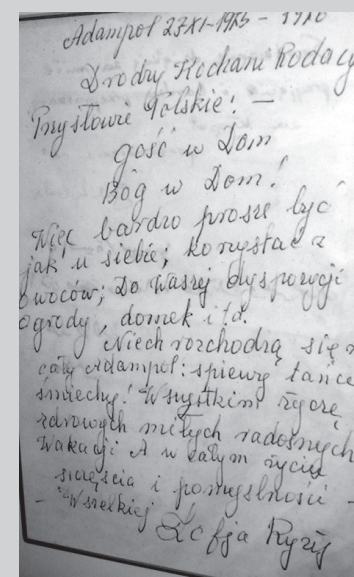 Adampol 27XI-1985 -
Drodzy Kochani Rodacy
Przysłowie Polskie: -
gość w Dom
Bóg w Dom!
Więc bardzo proszę być
jak u siebie; korzystać z
owoców; Do Waszej dyspozycji
Ogrody, domek i td.
Niech rozchodzą się
cały Adampol: śpiewy tańce
śmiechy! Wszystkim życzę
zdrowych miłych radosnych
Wakacji A w całym życiu
szczęścia i pomyślności -
- Wszelkiej
Zofja Ryży